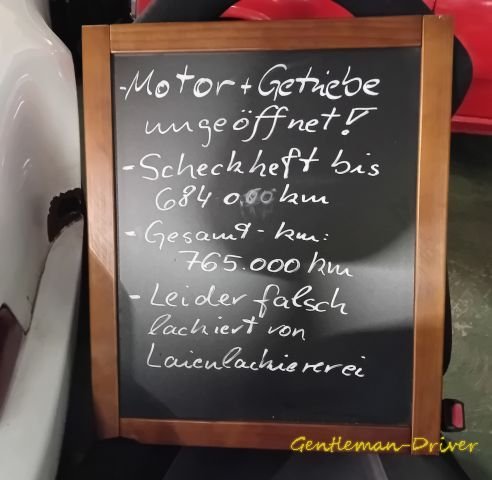 - Motor + Getriebe
ungeöffnet!
- Scheckheft bis
684 000 km
- Gesamt - km:
765.000 km
- Leider falsch
lackiert von
Laienlackiererei
Gentleman-Driver